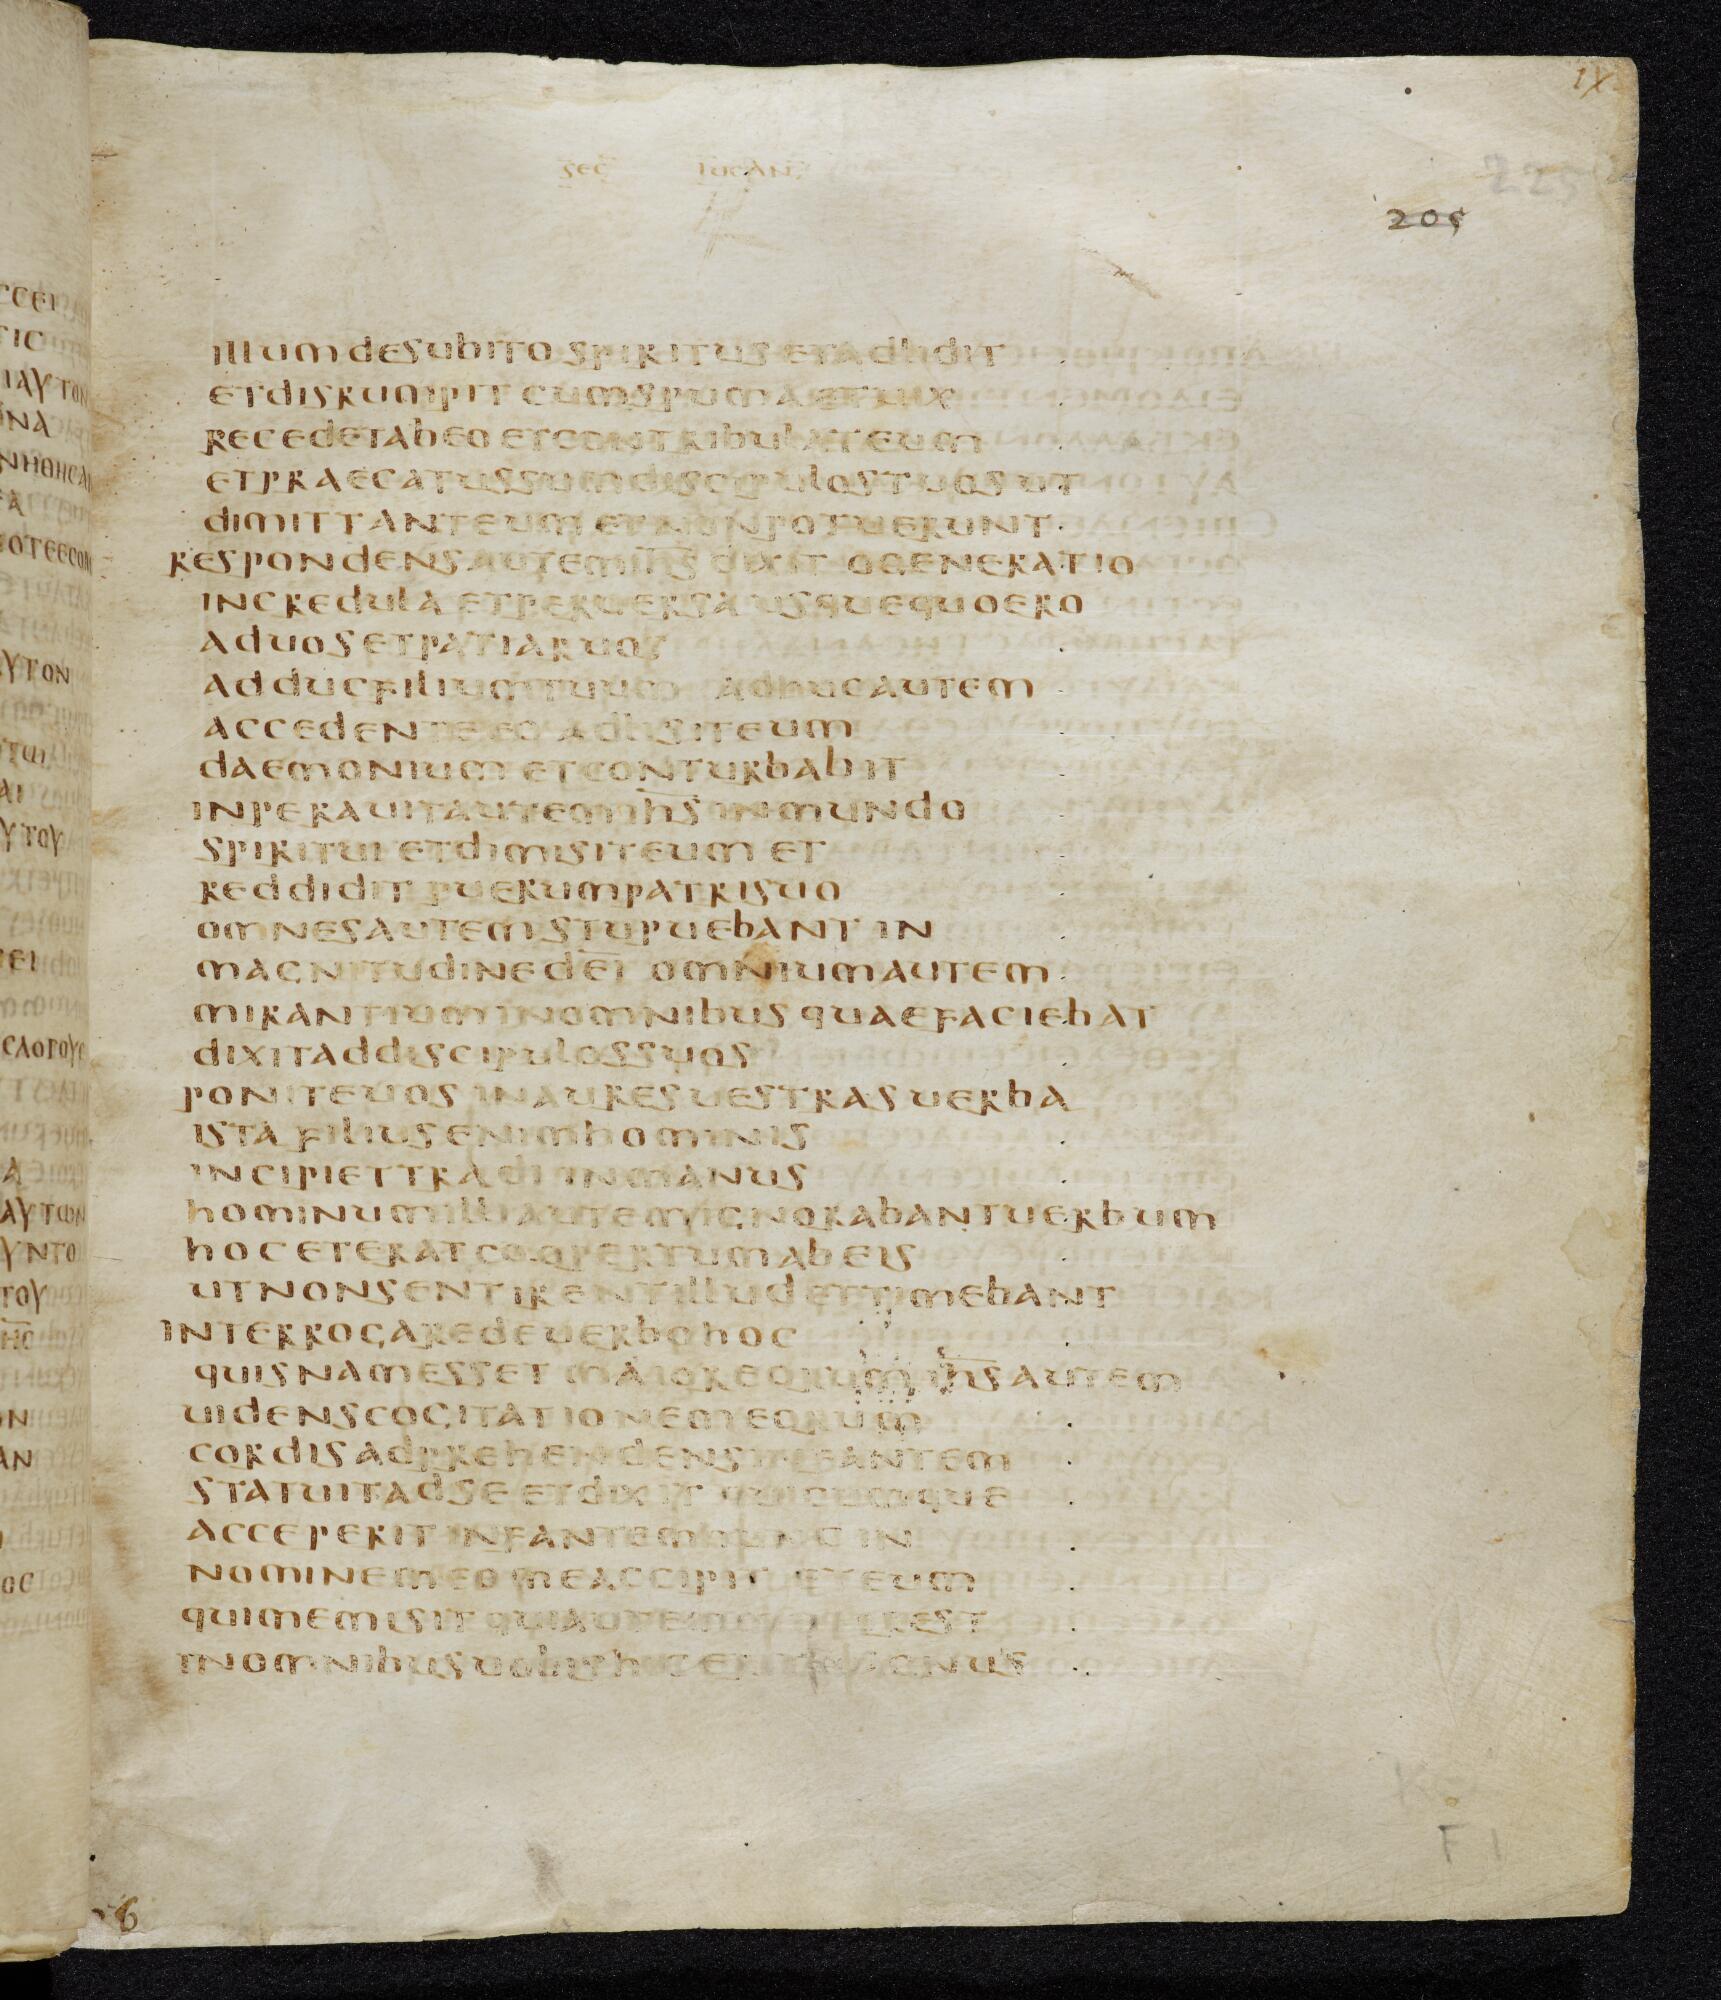 IX
SEC LUCAN
225
205
illum desubito spiritus et adlidit
et disrumpit cum spuma et uix
recedet ab eo et contribulat eum
et praecatus sum discipulos tuos ut
dimittant eum et non potuerunt
respondens autem ihs dixit o generatio
incredula et peruersa usquequo ero
ad uos et patiar uos
adduc filium tuum adhuc autem
accedente eo adlisit eum
daemonium et conturbabit
inperauit autem ihs inmundo
spiritui et dimisit eum et
reddidit puerum patri suo
omnes autem stupuebant in
magnitudine dei omnium autem
mirantium in omnibus quae faciebat
dixit ad discipulos suos
ponite uos in aures uestras uerba
ista filius enim hominis
incipiet tradi in manus
hominum illi autem ignorabant uerbum
hoc et erat coopertum ab eis
ut non sentirent illud et timebant
interrogare de uerbo hoc
quisnam esset maior eorum ihs autem
uidens cogitationem eorum
cordis adprehendens infantem
statuit ad se et dixit quicumque
acceperit infantem hunc in
nomine meo me accipit et eum
qui me misit qui autem est
in omnibus uobis hic erit magnus